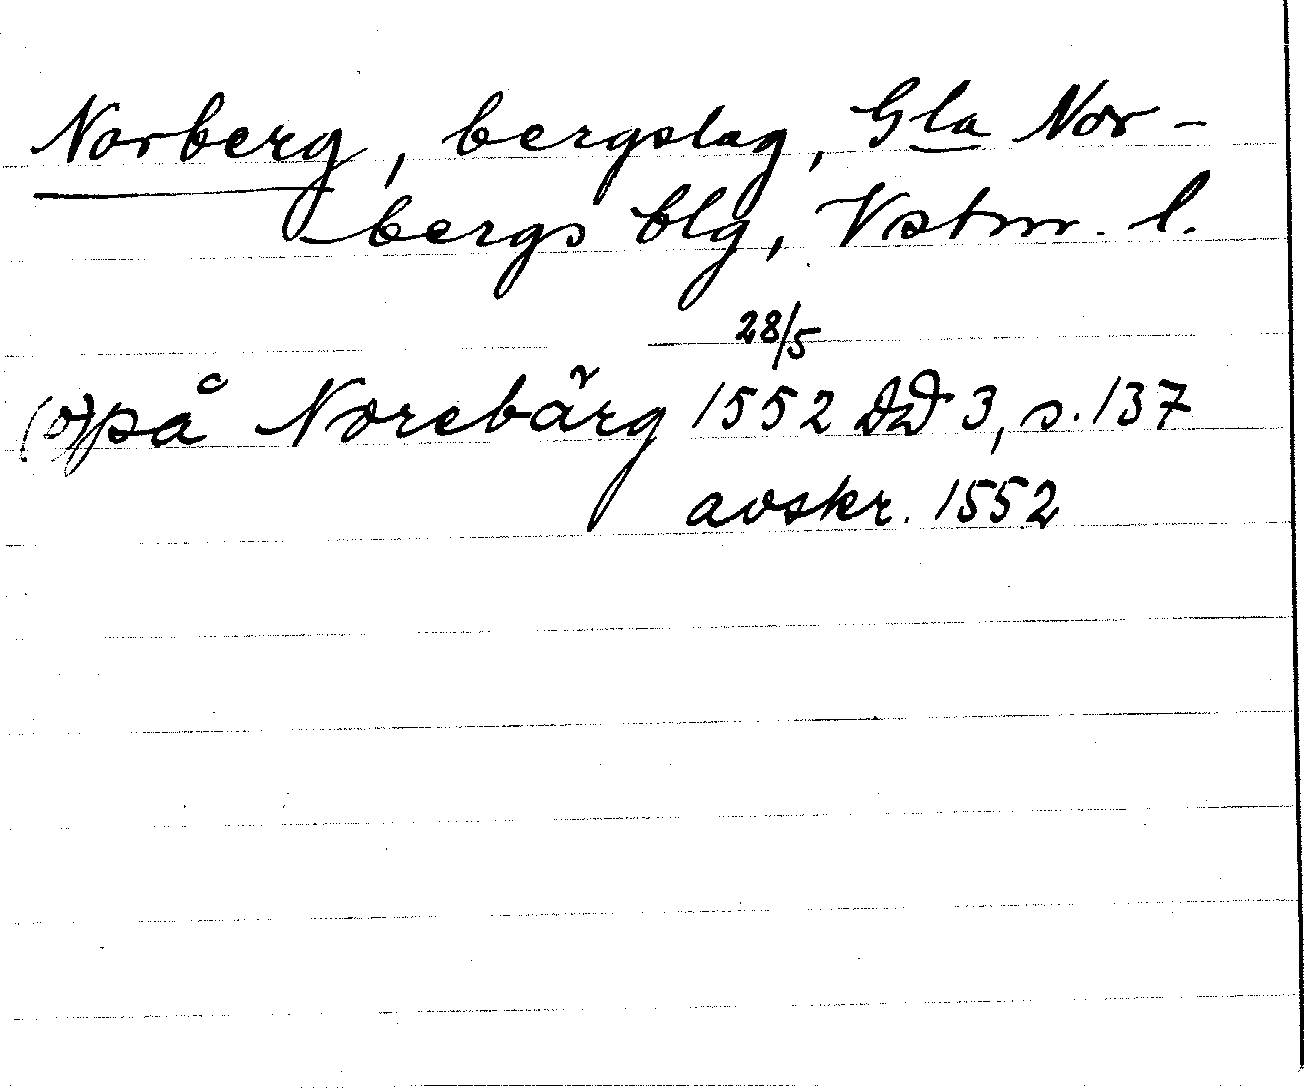 Norberg, bergslag, Gla Nor-
bergs blg, Vstm. l.
28/5
(o) på Norebärg 1552 DD 3, s. 137
avskr. 1552